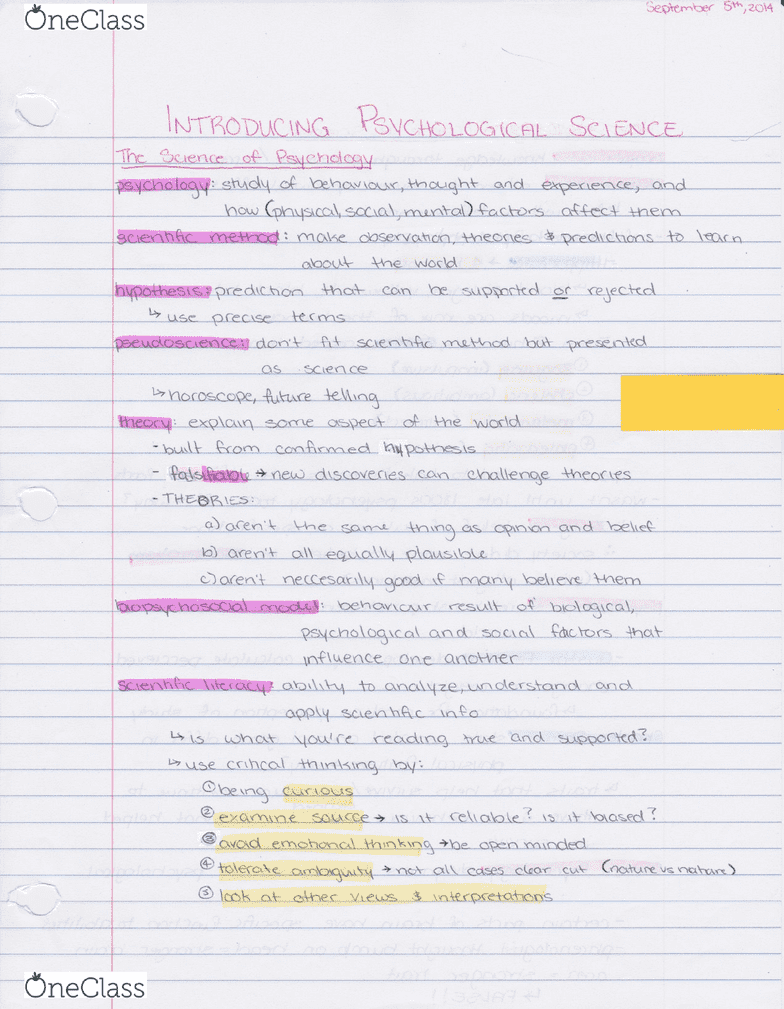 OneClass
September 5th, 2014
INTRODUCING PSYCHOLOGICAL SCIENCE
The Science of Psychology
psychology: study of behaviour, thought and experience, and
how (physical, social, mental) factors affect them
scientific method: make observation, theories & predictions to learn
about the world
hypothesis: prediction that can be supported or rejected
↳ use precise terms
pseudoscience: don't fit scientific method but presented
as science
↳ horoscope, future telling
theory: explain some aspect of the world
- built from confirmed hypothesis
- falsifiable → new discoveries can challenge theories
- THEORIES:
a) aren't the same thing as opinion and belief
b) aren't all equally plausible
c) aren't neccesarily good if many believe them
biopsychosocial model: behaviour result of biological,
psychological and social factors that
influence one another
scientific literacy: ability to analyze, understand and
apply scientific info
↳ is what you're reading true and supported?
↳ use critical thinking by:
① being curious
② examine source → is it reliable? is it biased?
③ avoid emotional thinking → be open minded
④ tolerate ambiguity → not all cases clear cut (nature vs nature)
⑤ look at other views & interpretations
OneClass